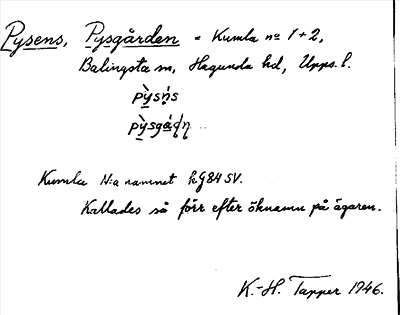 Pysens, Pysgården = Kumla no 1+2,
Balingsta sn, Hagunda hd, Upps. l.
pỳsńs
pỳsgá
Kumla N:a namnet kG84 SV.
Kallades så förr efter öknamn på ägaren.
K.-H. Tapper 1946.